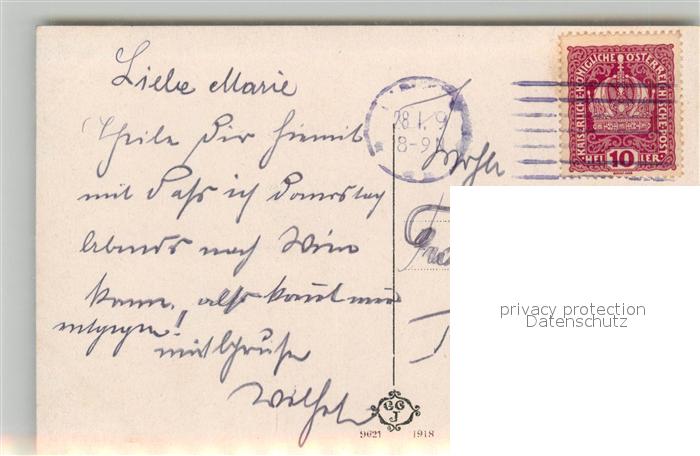 Liebe Marie
Theile Dir hiemit
mit dass ich Donnerstag
Abends nach Wien
komme, also komt mir
entgegen!
mit Gruss
Wilhelm
28.I.9
8-9
Wohlg
KAISERLICHE KÖNIGLICHE ÖSTERREICHISCHE POST
HELLER 10
privacy protection
Datenschutz
9621 1918